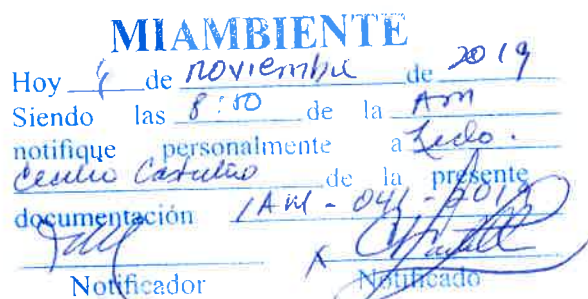 MIAMBIENTE
Hoy de noviembre de 2019
Siendo las 8:50 de la Am
notifique personalmente a Licdo.
de la presente
documentación - 041 - 2019
Notificador Notificado